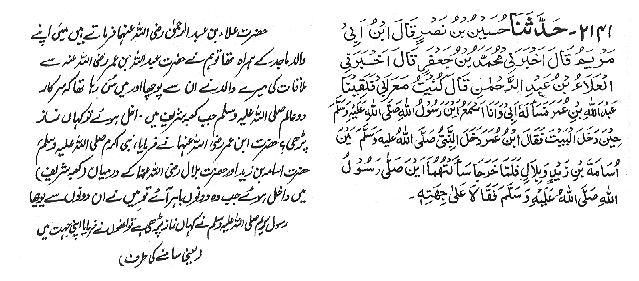 ۲۱۴۱- حَدَّثَنَا حُسَيْنُ بْنُ نَصْرٍ قَالَ ابْنُ اَبِيْ
مَرْيَمَ قَالَ اَخْبَرَنِيْ مُحَمَّدُ بْنُ جَعْفَرٍ قَالَ اَخْبَرَنِي
الْعَلَاءُ بْنُ عَبْدِ الرَّحْمٰنِ قَالَ كُنْتُ مَعَ اَبِيْ فَلَقِيْنَا
عَبْدَ اللهِ بْنَ عُمَرَ فَسَاَلَهٗ اَبِيْ وَاَنَا اَسْمَعُ اَيْنَ رَسُوْلُ اللهِ صَلَّى اللهُ عَلَيْهِ وَسَلَّمَ
حِيْنَ دَخَلَ الْبَيْتَ فَقَالَ ابْنُ عُمَرَ دَخَلَ النَّبِيُّ صَلَّى اللهُ عَلَيْهِ وَسَلَّمَ بَيْنَ
اُسَامَةَ بْنِ زَيْدٍ وَبِلَالٍ فَلَمَّا خَرَجَا سَاَلْتُهُمَا اَيْنَ صَلّٰى رَسُوْلُ
اللهِ صَلَّى اللهُ عَلَيْهِ وَسَلَّمَ فَقَالَا عَلٰى جِهَتِهٖ۔
حضرت علاء بن عبد الرحمٰن رضی اللہ عنہما فرماتے ہیں میں اپنے
والد ماجد کے ہمراہ تھا تو ہم نے حضرت عبد اللہ بن عمر رضی اللہ عنہ سے
ملاقات کی میرے والد نے ان سے پوچھا اور میں سن رہا تھا کہ سرکار
دو عالم صلی اللہ علیہ وسلم جب کعبہ شریف میں داخل ہوئے تو کہاں نماز
پڑھی؟ حضرت ابن عمر رضی اللہ عنہما نے فرمایا، نبی اکرم صلی اللہ علیہ وسلم
حضرت اسامہ بن زید اور حضرت بلال رضی اللہ عنہما کے درمیان (کعبہ شریف) میں
داخل ہوئے جب وہ دونوں باہر آئے تو میں نے ان دونوں سے پوچھا
رسول کریم صلی اللہ علیہ وسلم نے کہاں نماز پڑھی ہے تو انھوں نے فرمایا اپنی جہت میں
(یعنی سامنے کی طرف)